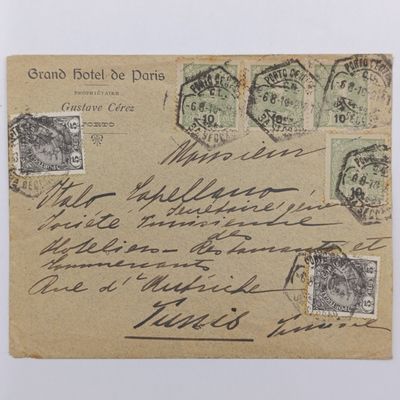 Grand Hotel de Paris
PROPRIÉTAIRE
Gustave Cérez
PORTO
PORTO CENTRAL
6-8-10
2ª SECÇÃO
10
10
10
10
5
5
5
5
Monsieur
Italo Capellano
Secrétaire gén
Société Tunisienne
des
Hoteliers - Restaurants et
Commercants
Rue d'Autriche
Tunis
Tunisie